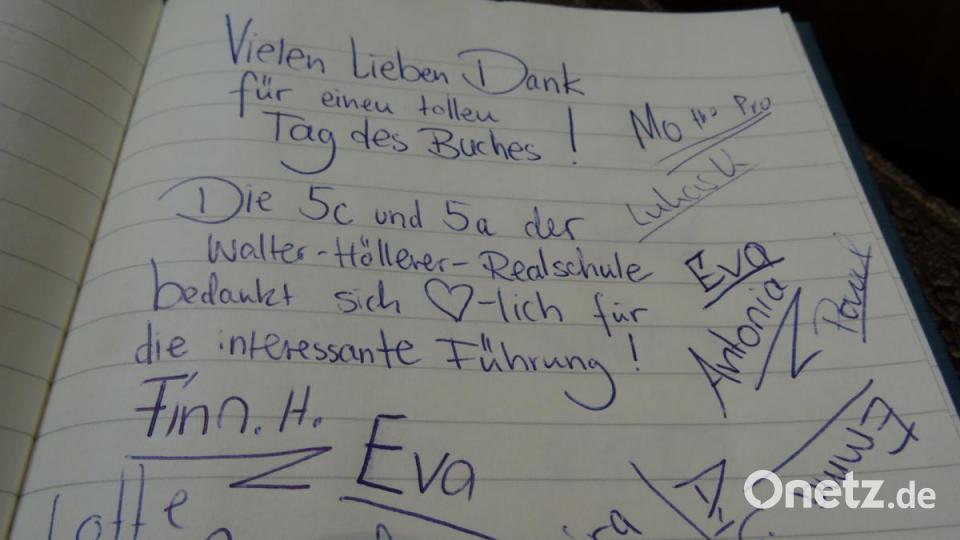 Vielen Lieben Dank
für einen tollen
Tag des Buches !
Mo the Pro
Lukas K.
Die 5c und 5a der
Walter-Höllerer-Realschule
bedankt sich ♡-lich für
die interessante Führung !
Eva
Antonia
Finn. H.
Eva
Lotte
Onetz.de